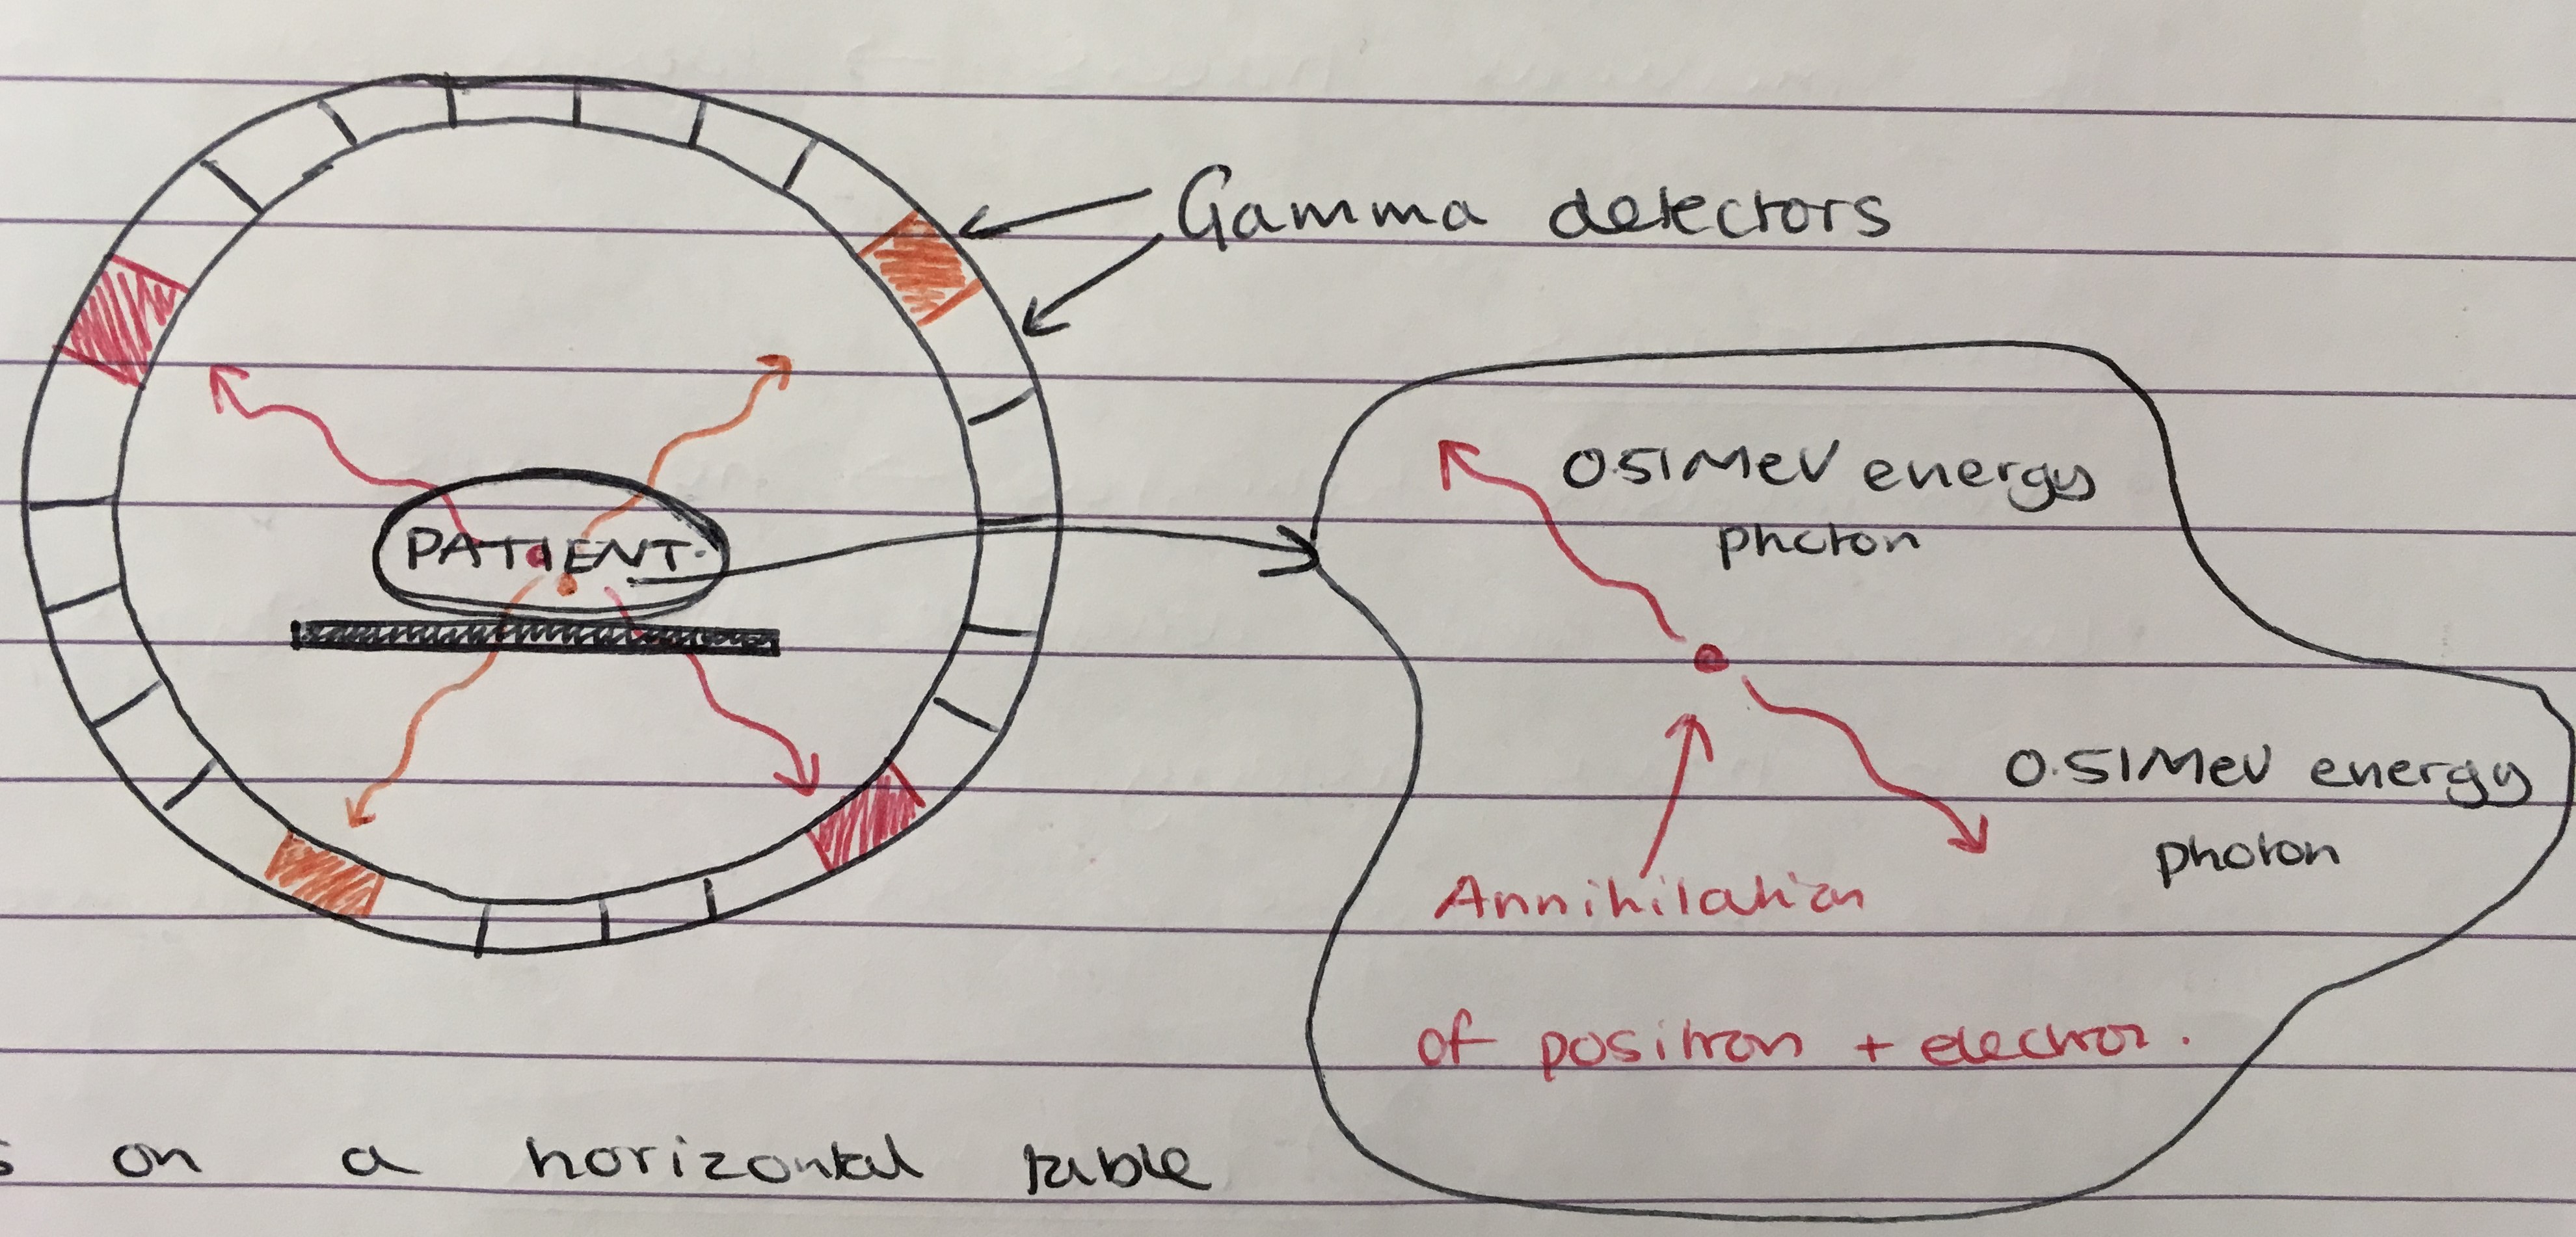 Gamma detectors
PATIENT.
0.51 MeV energy
photon
0.51 MeV energy
photon
Annihilation
of positron + electron.
on a horizontal table